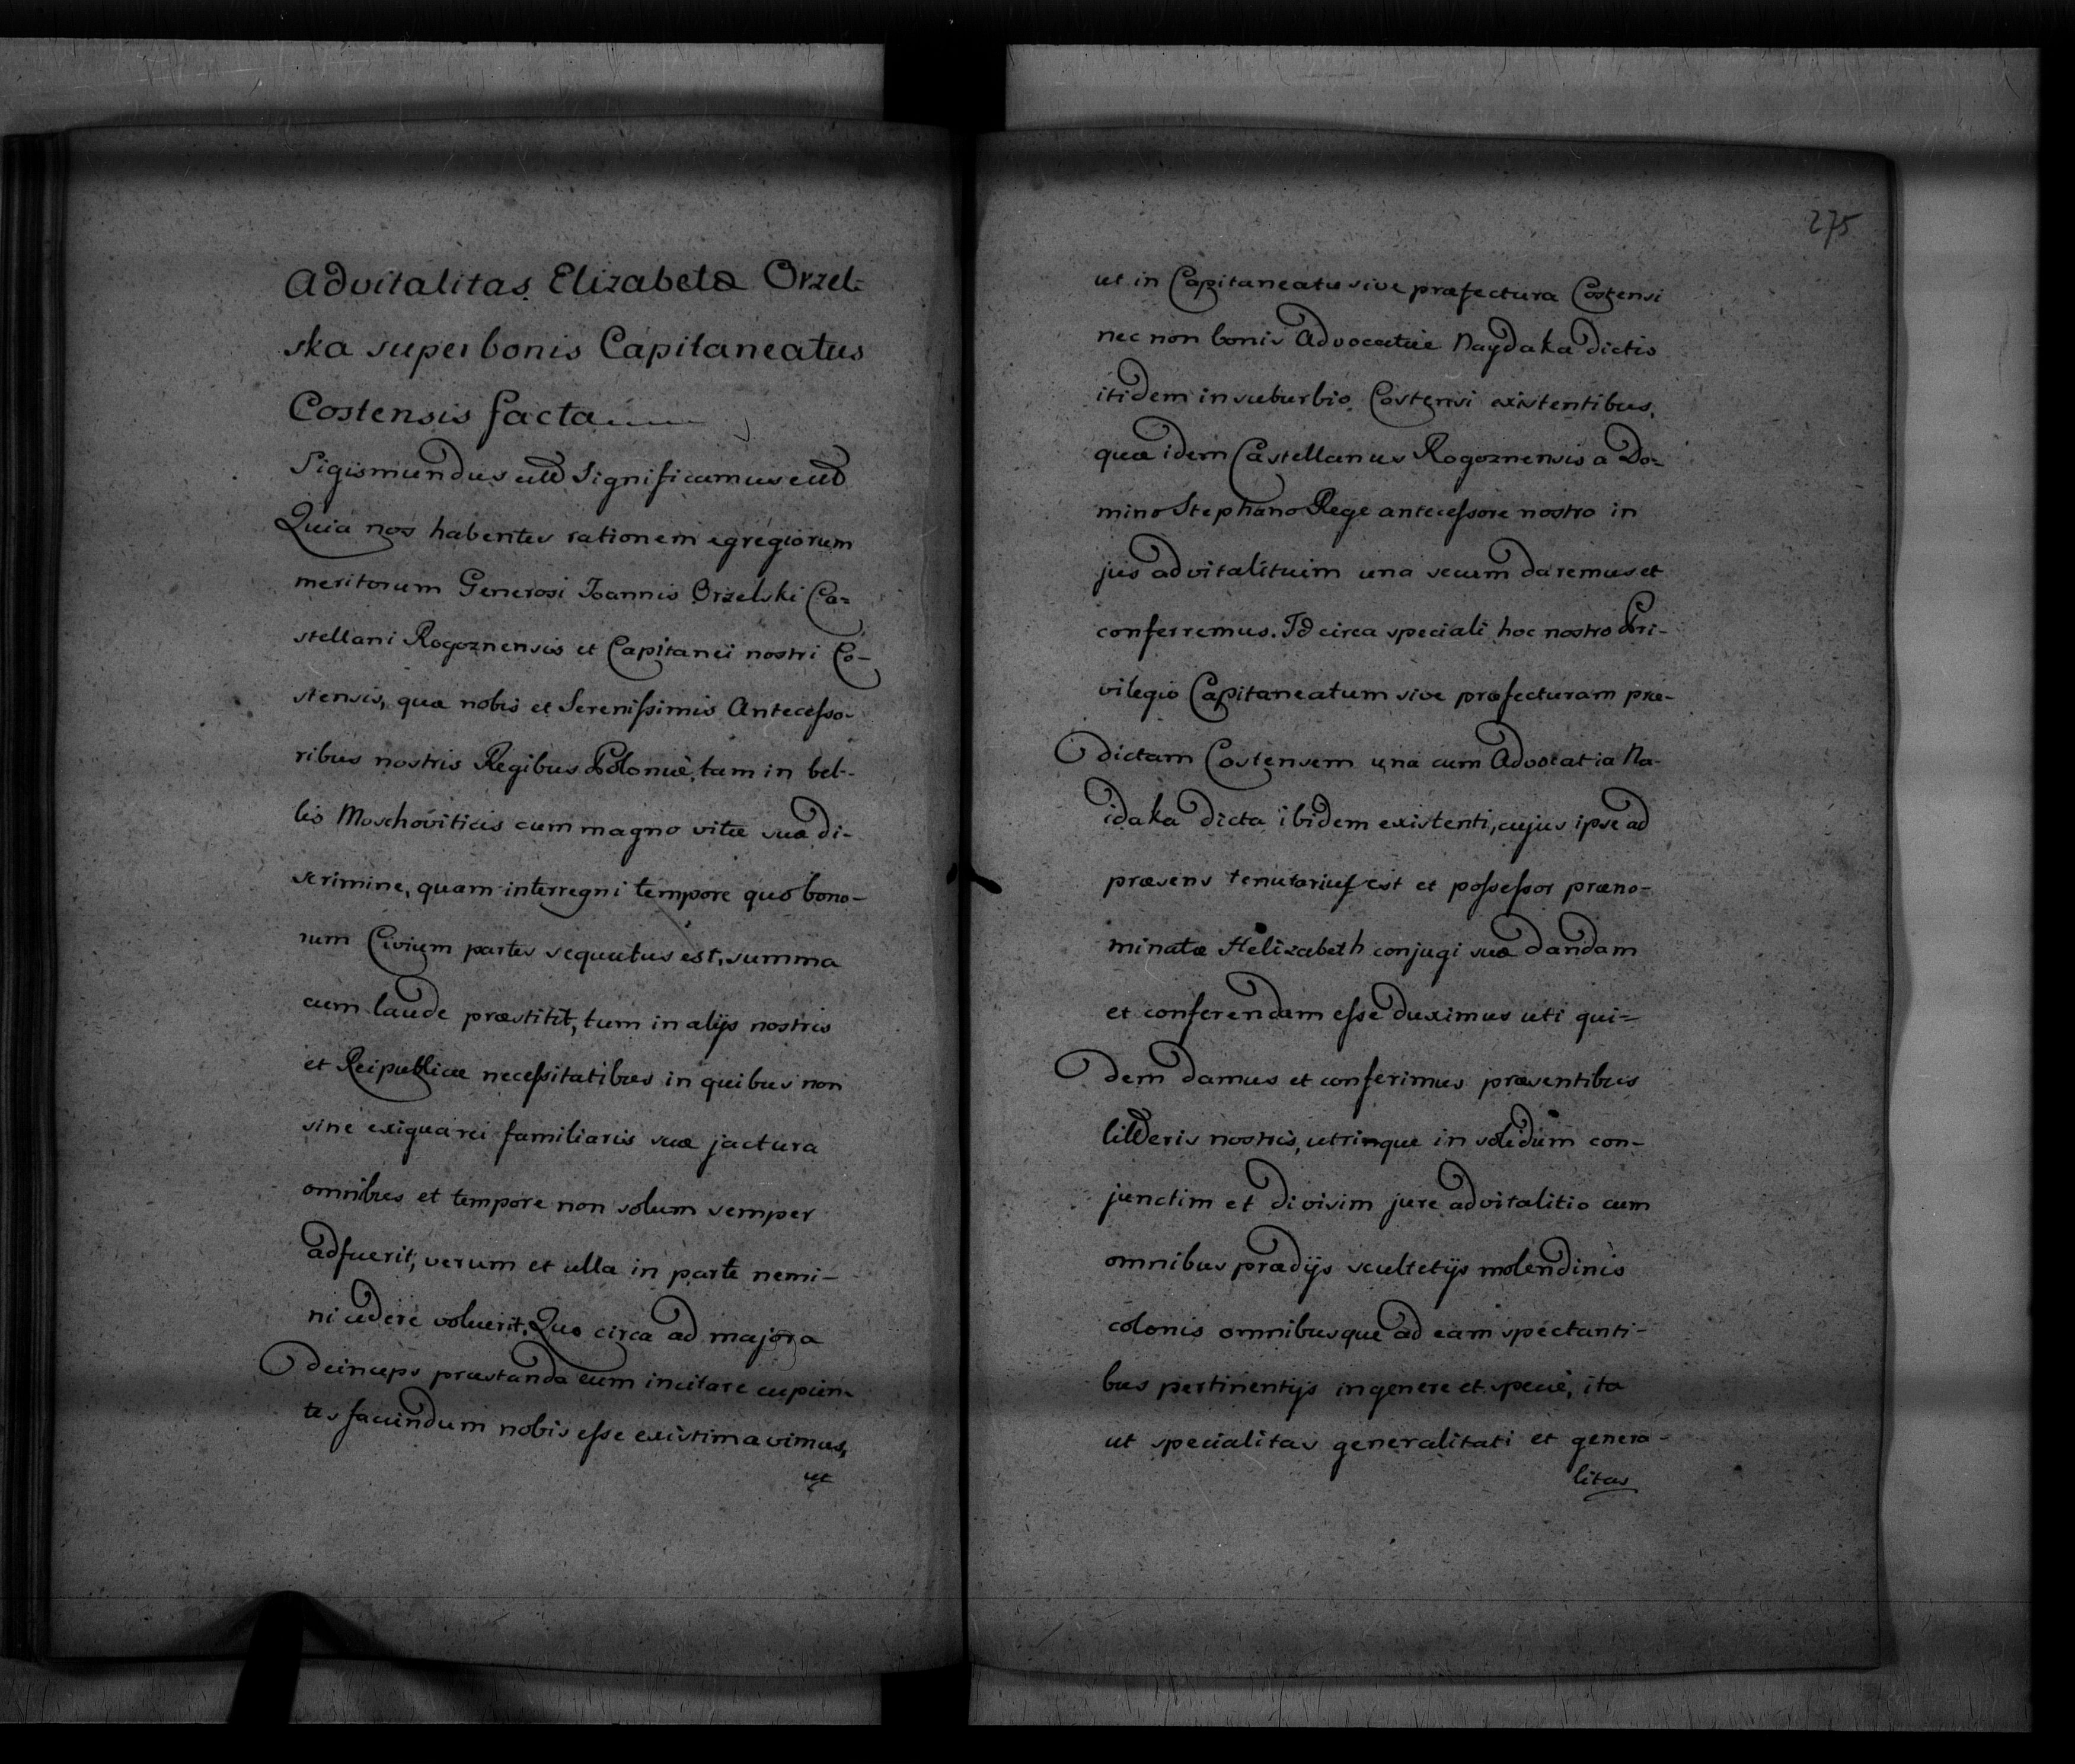 Advitalitas Elizabetæ Orzel-
ska super bonis Capitaneatus
Costensis facta
Sigismundus etc Significamus etc
Quia nos habentes rationem egregiorum
meritorum Generosi Joannis Orzelski Ca-
stellani Rogoznensis et Capitanei nostri Co-
stensis, quæ nobis et Serenissimis Antecesso-
ribus nostris Regibus Poloniæ, tam in bel-
lis Moschoviticis cum magno vitæ suæ di-
scrimine, quam interregni tempore quo bono-
rum Civium partes sequutus est, summa
cum laude præstitit, tum in alijs nostris
et Reipublicæ necessitatibus in quibus non
sine exigua rei familiaris suæ jactura
omnibus et tempore non solum semper
adfuerit, verum et ulla in parte nemi-
ni cedere voluerit. Quo circa ad majora
deinceps præstanda eum incitare cupien-
tes faciendum nobis esse existimavimus,
ut
275
ut in Capitaneatu sive præfectura Costensi
nec non bonis Advocatiæ Naydaka dictis
itidem in suburbio Costensi existentibus,
quæ idem Castellanus Rogoznensis a Do-
mino Stephano Rege antecessore nostro in
jus advitalituim una secum daremus et
conferremus. Id circa speciali hoc nostro Pri-
vilegio Capitaneatum sive præfecturam præ-
dictam Costensem una cum Advocatia Na-
idaka dicta ibidem existenti, cujus ipse ad
præsens tenutarius est et possessor præno-
minatæ Helizabeth conjugi suæ dandam
et conferendam esse duximus uti qui-
dem damus et conferimus præsentibus
litteris nostris, utrinque in solidum con-
junctim et divisim jure advitalitio cum
omnibus prædijs scultetijs molendinis
colonis omnibusque ad eam spectanti-
bus pertinentijs in genere et specie, ita
ut specialitas generalitati et genera-
litas